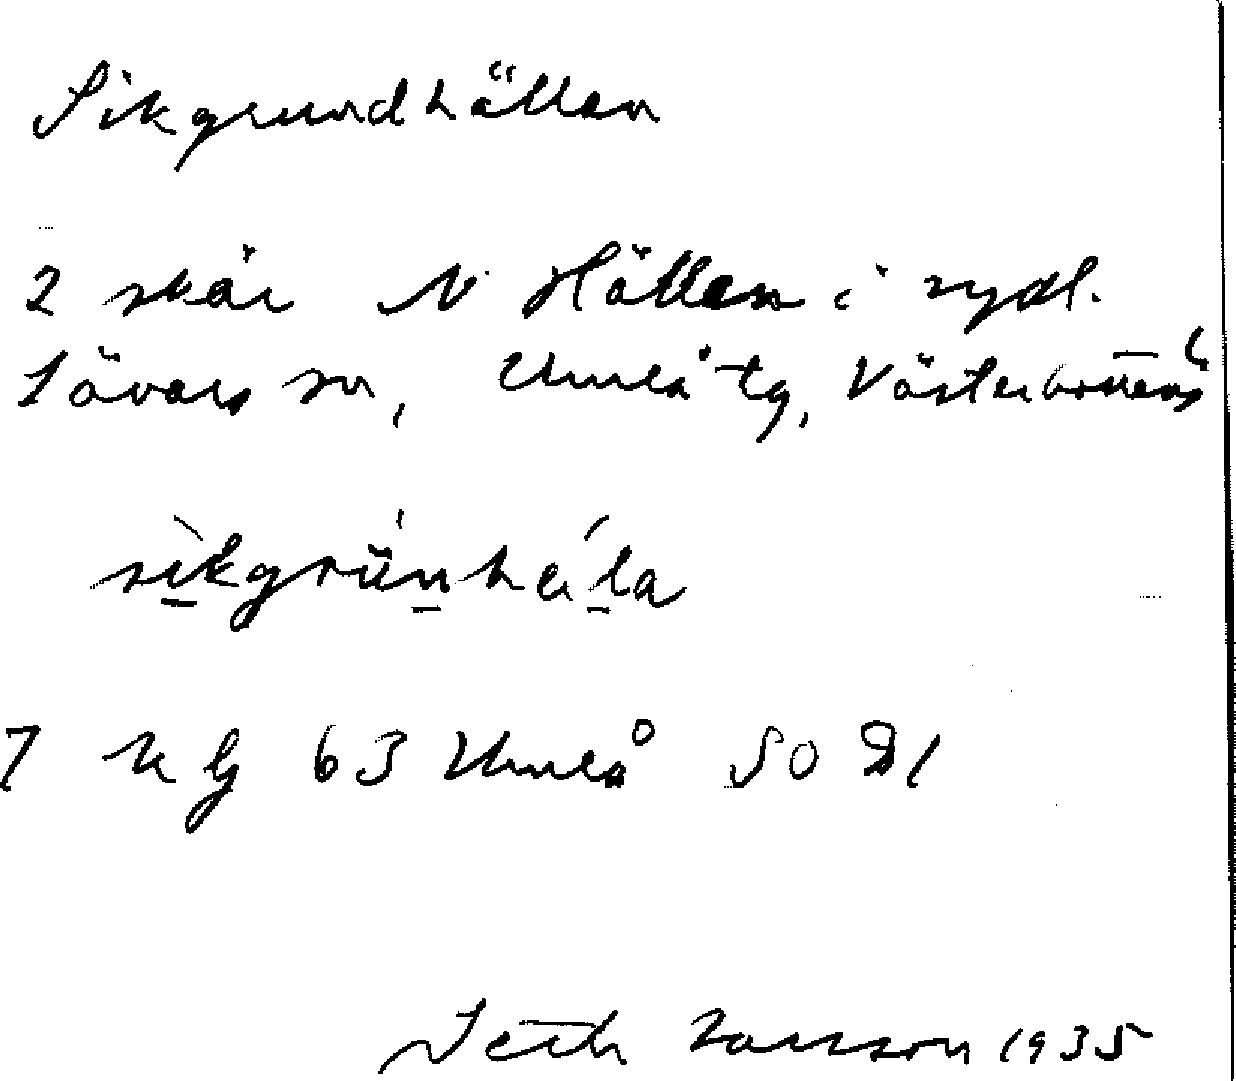 Sikgrundhällan
2 skär N Hällan i sydl.
Sävars sn, Umeå tg, Västerbottens l
sikgrünhäla
7 KG 63 Umeå SO D1
Seth Jansson 1935